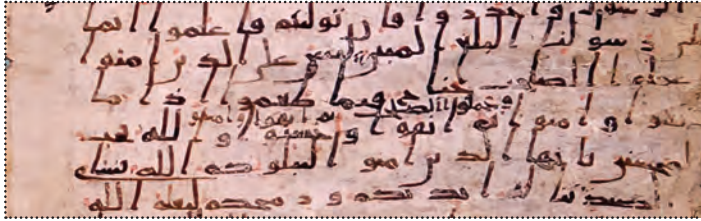 الرسول واحذروا فان توليتم فاعلموا انما
على رسولنا البلغ المبين ليس على الذين امنوا
وعملوا الصلحت جناح فيما طعموا اذا ما
اتقوا وامنوا وعملوا الصلحت ثم اتقوا وامنوا ثم اتقوا واحسنوا والله يحب
المحسنين يايها الذين امنوا ليبلونكم الله بشى
الصيد تناله ايديكم ورمحكم ليعلم الله